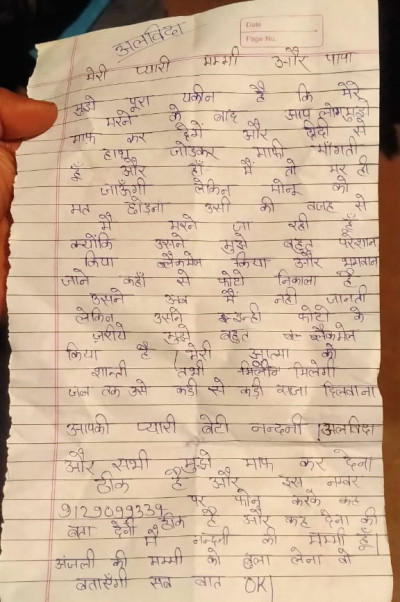 अलविदा
Date
Page No.
मेरी प्यारी मम्मी और पापा
मुझे पूरा यकीन है कि मेरे
मरने के बाद आप लोग मुझे
माफ कर देगें और दीदी से
हाथ जोडकर माफी माँगती
हूँ और हाँ मैं तो मर ही
जाऊँगी लेकिन मोनू को
मत छोडना उसी की वजह से
मैं मरने जा रही हूँ
क्योंकि उसने मुझे बहुत परेशान
किया ब्लैकमेल किया और भगवान
जाने कहाँ से फोटो निकाला है
उसने अब मैं नही जानती
लेकिन उसने इन्ही फोटो के
जरीये मुझे बहुत ब्लैकमेल
किया है। मेरी आत्मा को
शान्ती तभी मिलेगी
जब तक उसे कडी से कडी सजा दिलवाना
आपकी प्यारी बेटी नन्दनी। अलविदा
और सभी मुझे माफ कर देना
ठीक है और इस नम्बर
पर फोन करके कह
9129099339
बता देना ठीक है और कह देना की
मैं नन्दनी की मम्मी हूँ
अंजली की मम्मी को बुला लेना वो
बताएँगी सब बात OK।